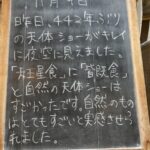 11月9日
昨日、442年ぶり
の天体ショーがキレイ
に夜空に見えました。
「天王星食」に「皆既食」
と自然の天体ショーは
すごかったです。自然のもの
はとてもすごいと実感させら
れました。